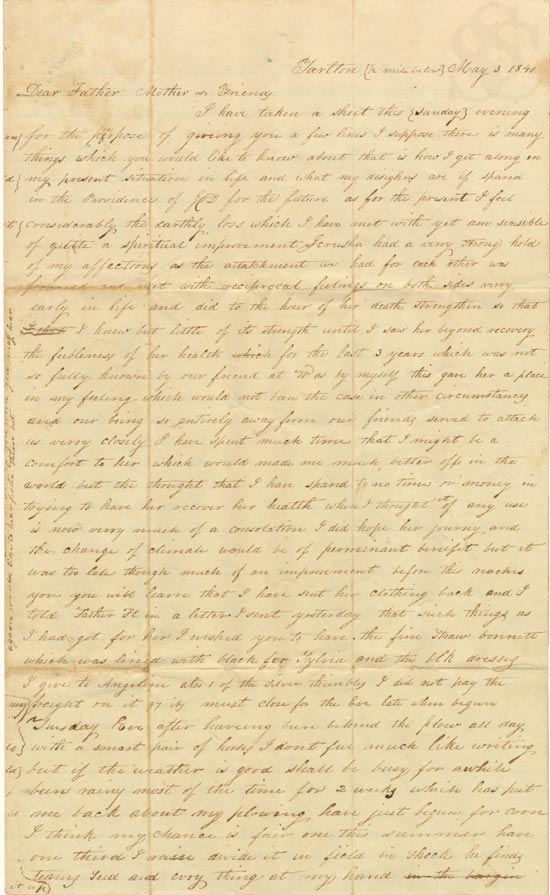 Tarlton {½ mile below} May 3 1840
Dear Father Mother & Friends
I have taken a sheet this {sunday} evening
for the purpose of giveing you a few lines I suppose there is many
things which you would like to know about that is how I get along in
my present situation in life and what my disighns are if spared
in the Providence of GOD for the future as for the present I feel
considerably the earthly loss which I have met with yet am sensible
of quite a spiritual improvement Jerusha had a verry strong hold
of my affections as the attatchment we had for each other was
formed and met with reciprocal feelings on both sides verry
early in life and did to the hour of her death strengthen so that
I knew but little of it strength until I saw her beyond recovery
the feebleness of her health which for the last 3 years which was not
so fully known by our friend at as by myself this gave her a place
in my feeling which would not ben the case in other circumstancy
and our being so entirely away from our friends served to attach
us verry closely I have spent much time that I might be a
comfort to her which would made me much better off in the
world but the thought that I have spared no time or money in
trying to have her recover her health when I thought it of any use
is now verry much of a consolation I did hope her journy and
the change of climate would be of permanant benifit but it
was too late though much of an improvement before this reaches
you you will learn that I have sent her clothing back and I
told Father in a letter I sent yesterday that such things as
I had got for her I wished you to have the fine straw bonnett
which was lined with black for Sylvia and the blk dresses
I give to Angeline also 1 of the silver thimbles I did not pay the
freight on it must close for the Eve late when begun
Tuesday Eve after haveing ben behind the plow all day
with a smart pair of horses I dont feel much like writing
but if the weather is good shall be busy for awhile
been rainy most of the time for 2 weeks which has put
me back about my plowing, have just begun for corn
I think my chance is fair one this summer have
one third I raise divide it in field in shock he finds
teams feed and evry thing at my hand in the bargin